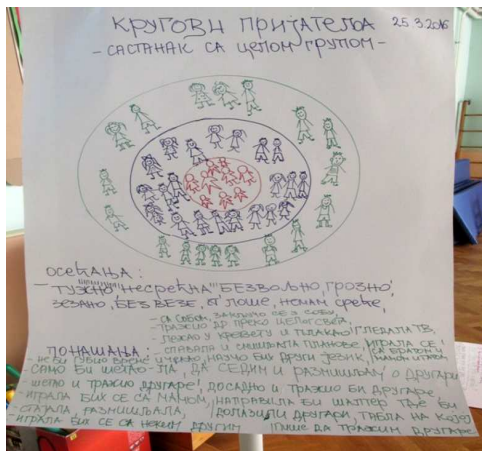 КРУГОВИ ПРИЈАТЕЉА
25.3.2016
-САСТАНАК СА ЦЕЛОМ ГРУПОМ-
ОСЕЋАЊА:
- ТУЖНО "НЕСРЕЋНА" БЕЗВОЉНО, ГРОЗНО,
ЗЕЗАНО, БЕЗ ВЕЗЕ, ЛОШЕ, НЕМАМ СРЕЋЕ,
ТРАЖИО ДР. ПРЕКО ЦЕЛОГ СВЕТА,
ЛЕЖАО У КРЕВЕТУ И ПЛАКАО, ГЛЕДАЛА ТВ,
ПОНАШАЊА: - СПАВАЛА И СМИШЉАЛА ПЛАНОВЕ, ИГРАЛА СЕ
СА БРАТОМ И
НАУЧИО БИХ ДРУГИ ЈЕЗИК,
САМО БИ ШЕТАО-ЛА, ДА СЕДИМ И РАЗМИШЉАМ О ДРУГАРИ
ШЕТАО И ТРАЖИО ДРУГАРЕ, ДОСАДНО И ТРАЖИО БИ ДРУГАРЕ
-ИГРАЛА БИХ СЕ СА МАМОМ, НАПРАВИЛА БИ ШАЛТЕР ГДЕ БИ
СТАЈАЛА, РАЗМИШЉАЛА, ДОЛАЗИЛИ ДРУГАРИ, ТАБЛА НА КОЈОЈ
-ИГРАЛА БИХ СЕ СА НЕКИМ ДРУГИМ ПИШЕ ДА ТРАЖИМ ДРУГАРЕ